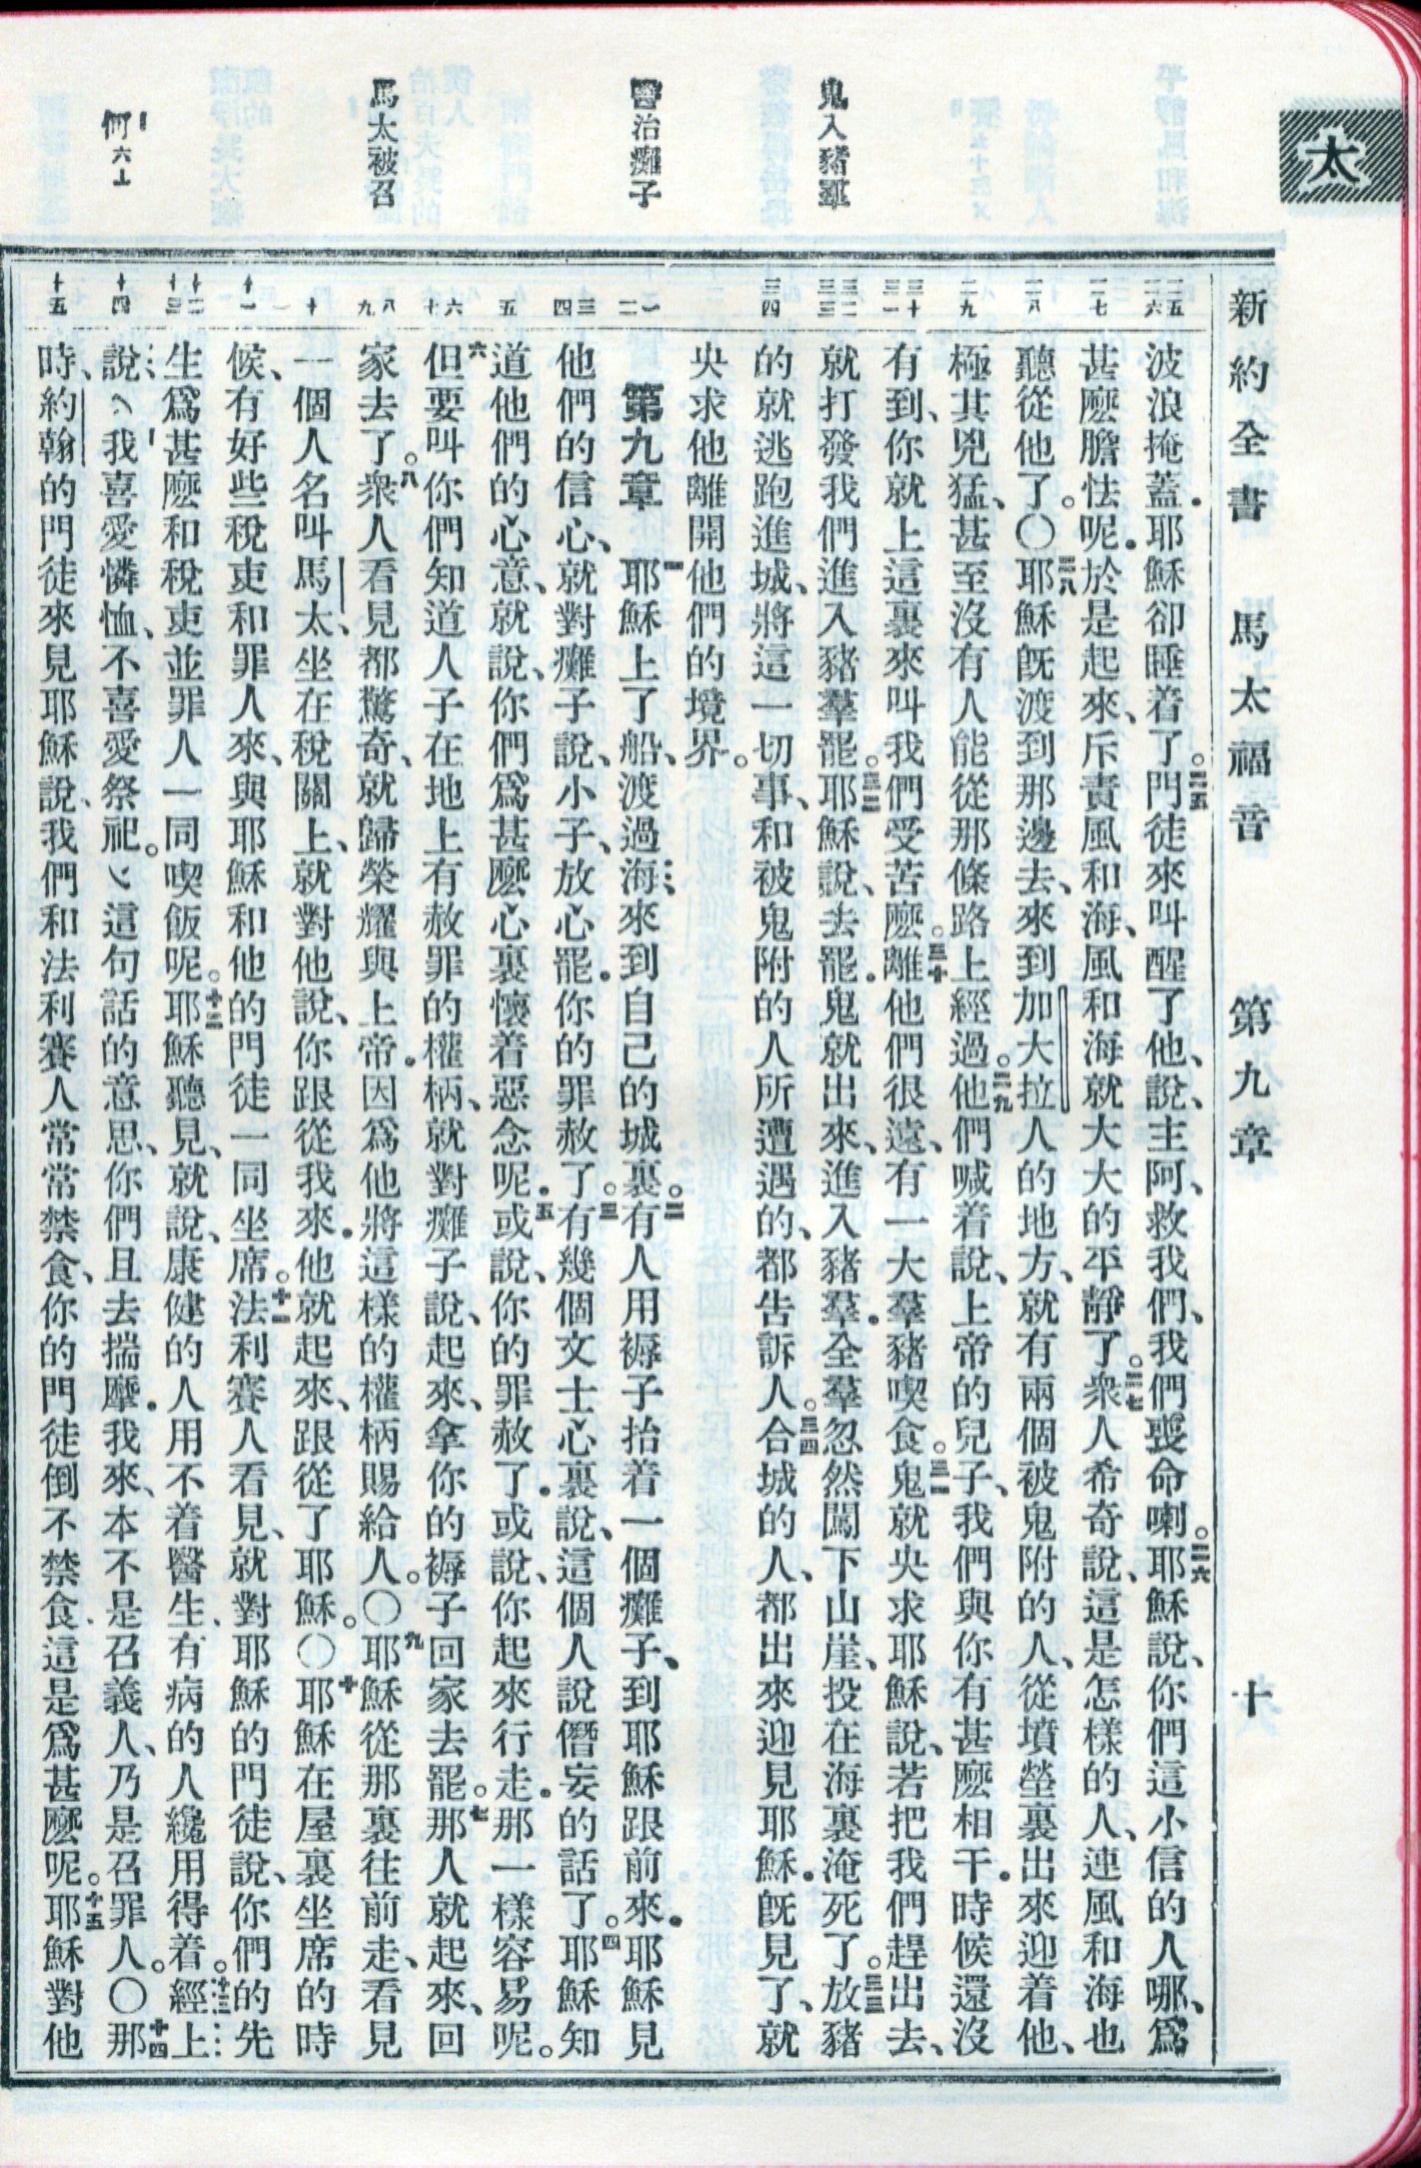 太
新約全書　馬太福音　第九章　十
鬼入豬羣
醫治癱子
馬太被召
何六6
二五二六
二七
二八
二九
三十三一
三二三三
三四
一二
三四
五
六七
八九
十
十一
十二十三
十四
十五
波浪掩蓋．耶穌卻睡着了。二五門徒來叫醒了他、說、主阿、救我們、我們喪命喇。二六耶穌說、你們這小信的人哪、爲
甚麼膽怯呢．於是起來、斥責風和海、風和海就大大的平靜了。二七衆人希奇說、這是怎樣的人、連風和海也
聽從他了。〇二八耶穌旣渡到那邊去、來到加大拉人的地方、就有兩個被鬼附的人、從墳塋裏出來迎着他、
極其兇猛、甚至沒有人能從那條路上經過。二九他們喊着說、上帝的兒子、我們與你有甚麼相干．時候還沒
有到、你就上這裏來叫我們受苦麼。三十離他們很遠、有一大羣豬喫食。三一鬼就央求耶穌說、若把我們趕出去、
就打發我們進入豬羣罷。三二耶穌說、去罷．鬼就出來、進入豬羣．全羣忽然闖下山崖、投在海裏淹死了。三三放豬
的就逃跑進城、將這一切事、和被鬼附的人所遭遇的、都告訴人。三四合城的人、都出來迎見耶穌．旣見了、就
央求他離開他們的境界。
第九章　一耶穌上了船、渡過海、來到自己的城裏。二有人用褥子抬着一個癱子、到耶穌跟前來．耶穌見
他們的信心、就對癱子說、小子、放心罷．你的罪赦了。三有幾個文士心裏說、這個人說僭妄的話了。四耶穌知
道他們的心意、就說、你們爲甚麼心裏懷着惡念呢．五或說、你的罪赦了．或說、你起來行走．那一樣容易呢。
六但要叫你們知道人子在地上有赦罪的權柄、就對癱子說、起來、拿你的褥子回家去罷。七那人就起來、回
家去了。八衆人看見都驚奇、就歸榮耀與上帝．因爲他將這樣的權柄賜給人。〇九耶穌從那裏往前走、看見
一個人名叫馬太、坐在稅關上、就對他說、你跟從我來．他就起來、跟從了耶穌。〇十耶穌在屋裏坐席的時
候、有好些稅吏和罪人來、與耶穌和他的門徒一同坐席。十一法利賽人看見、就對耶穌的門徒說、你們的先
生爲甚麼和稅吏並罪人一同喫飯呢。十二耶穌聽見、就說、康健的人用不着醫生、有病的人纔用得着。十三經上
說、〈我喜愛憐恤、不喜愛祭祀。〉這句話的意思、你們且去揣摩．我來、本不是召義人、乃是召罪人。〇十四那
時、約翰的門徒來見耶穌說、我們和法利賽人常常禁食、你的門徒倒不禁食、這是爲甚麼呢。十五耶穌對他